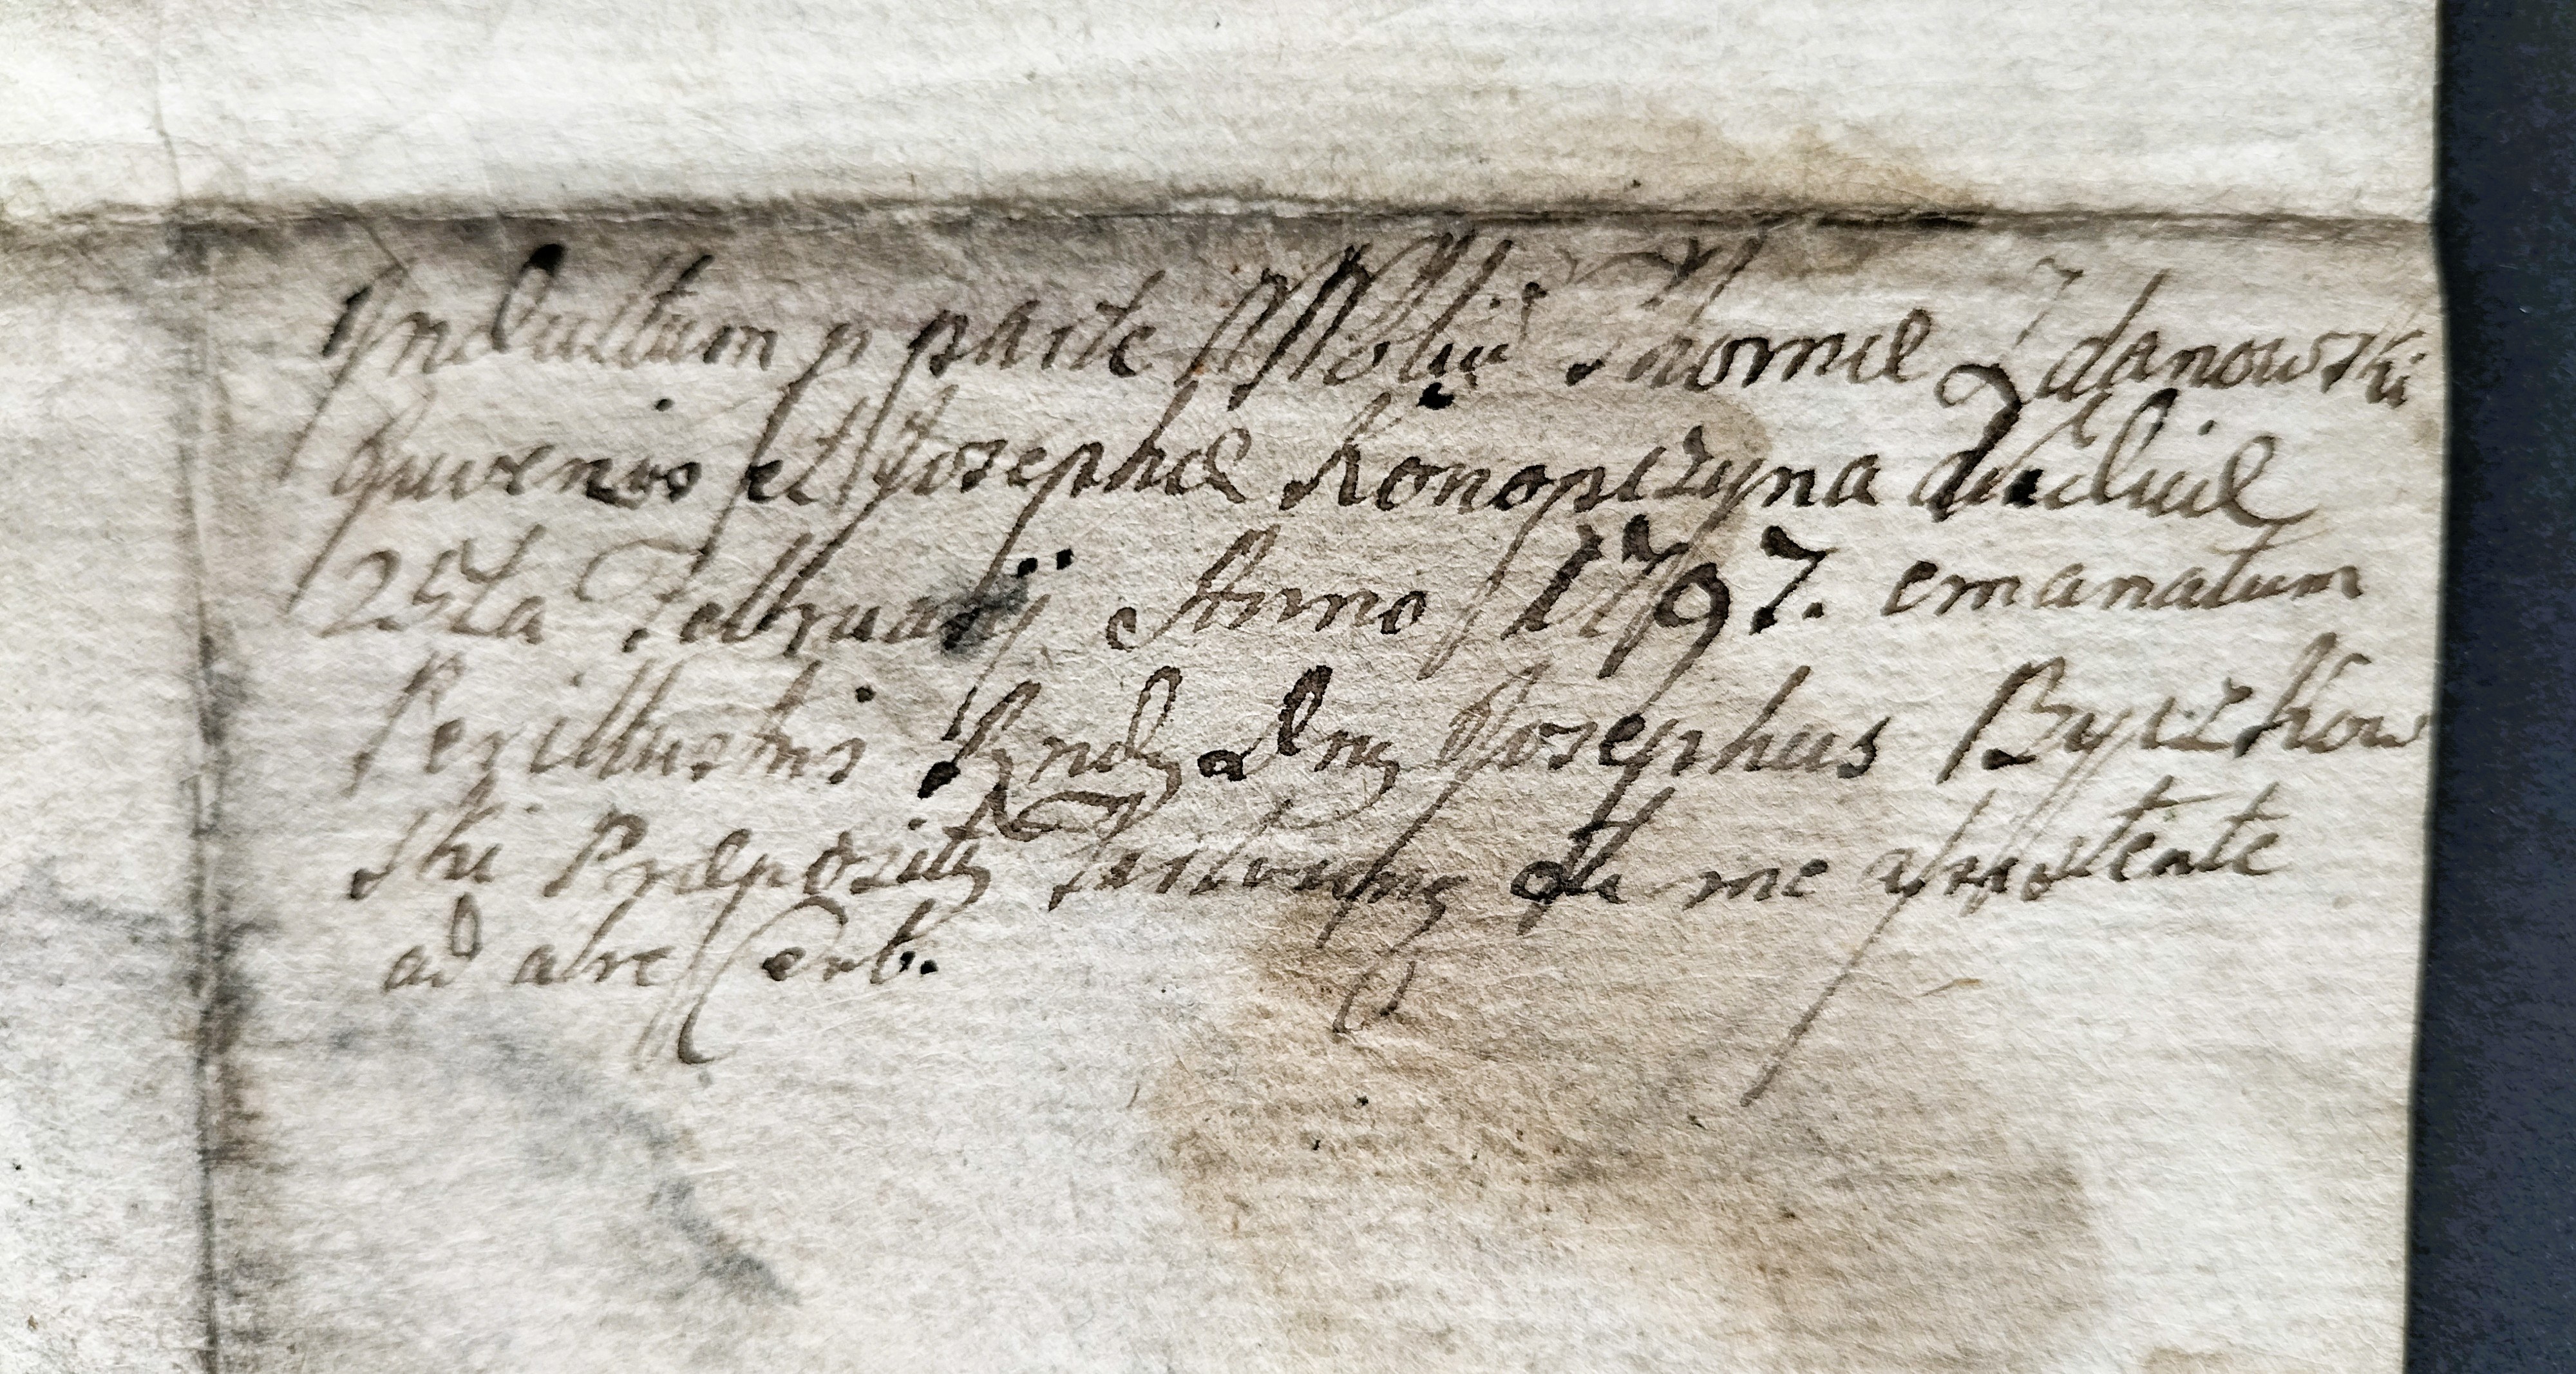 Indultum p parte Nobliũ Thomæ Zdanowski
Juvenis et Josephæ Konopczyna Viduæ
25ta Februarij Anno 1797. emanatum
Perillustris Rndg Dng Josephus Byczkow
ski Præpositg me assistente
ad abre